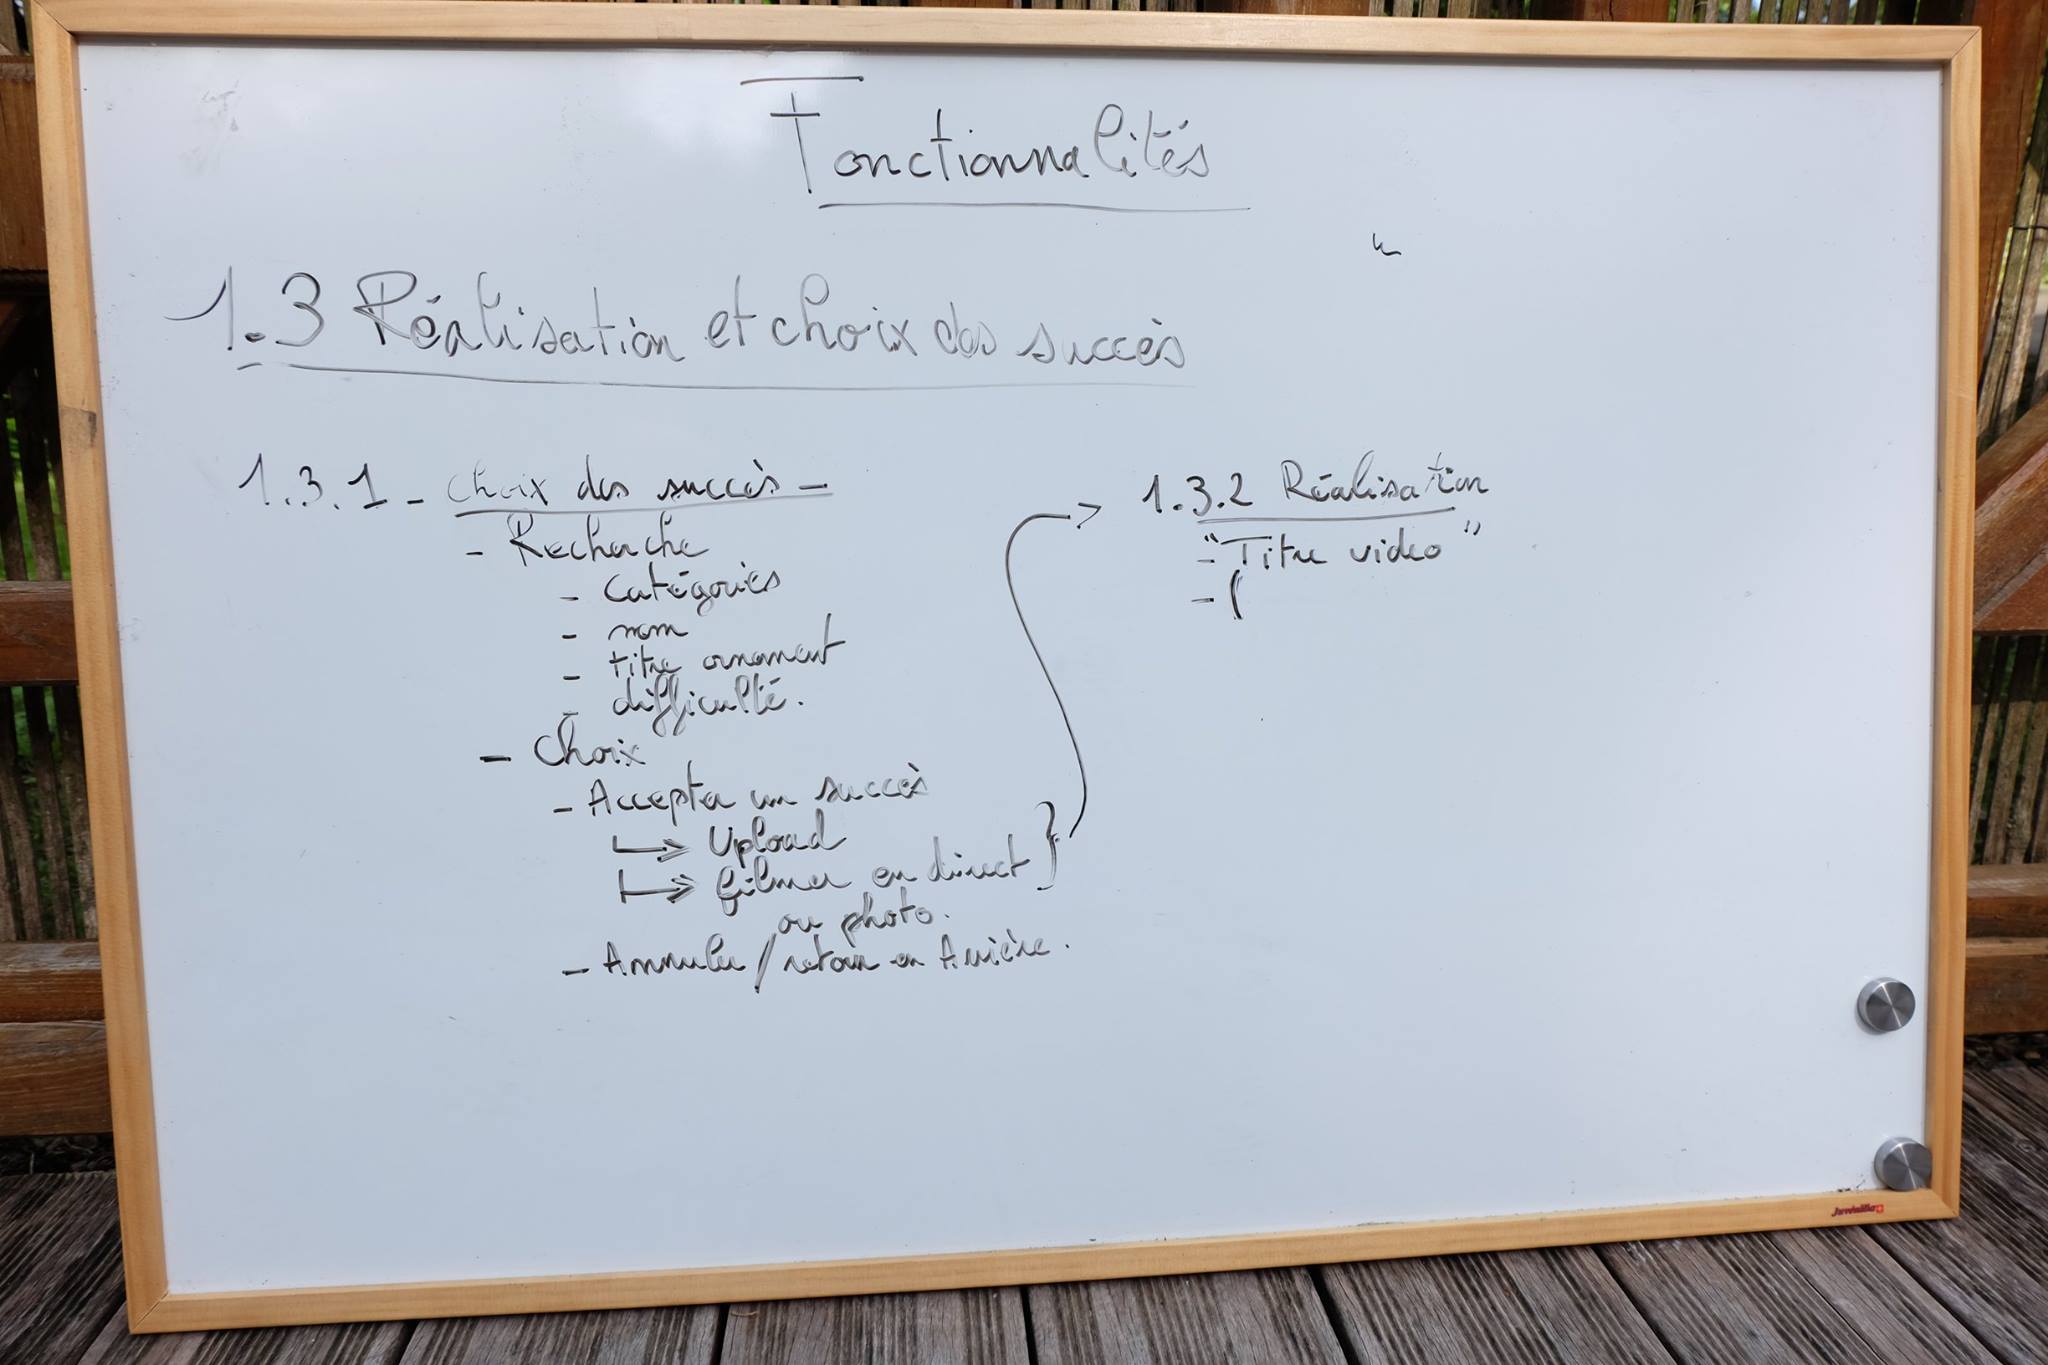 Fonctionnalités
1.3 Réalisation et choix des succès
1.3.1 - Choix des succès -
- Recherche
- Catégories
- nom
- titre ornement
- difficulté.
- Choix
- Accepter un succès
↳> Upload
↳> filmer en direct }
ou photo.
- Annuler / retour en Arrière.
-> 1.3.2 Réalisation
- "Titre video"
- (